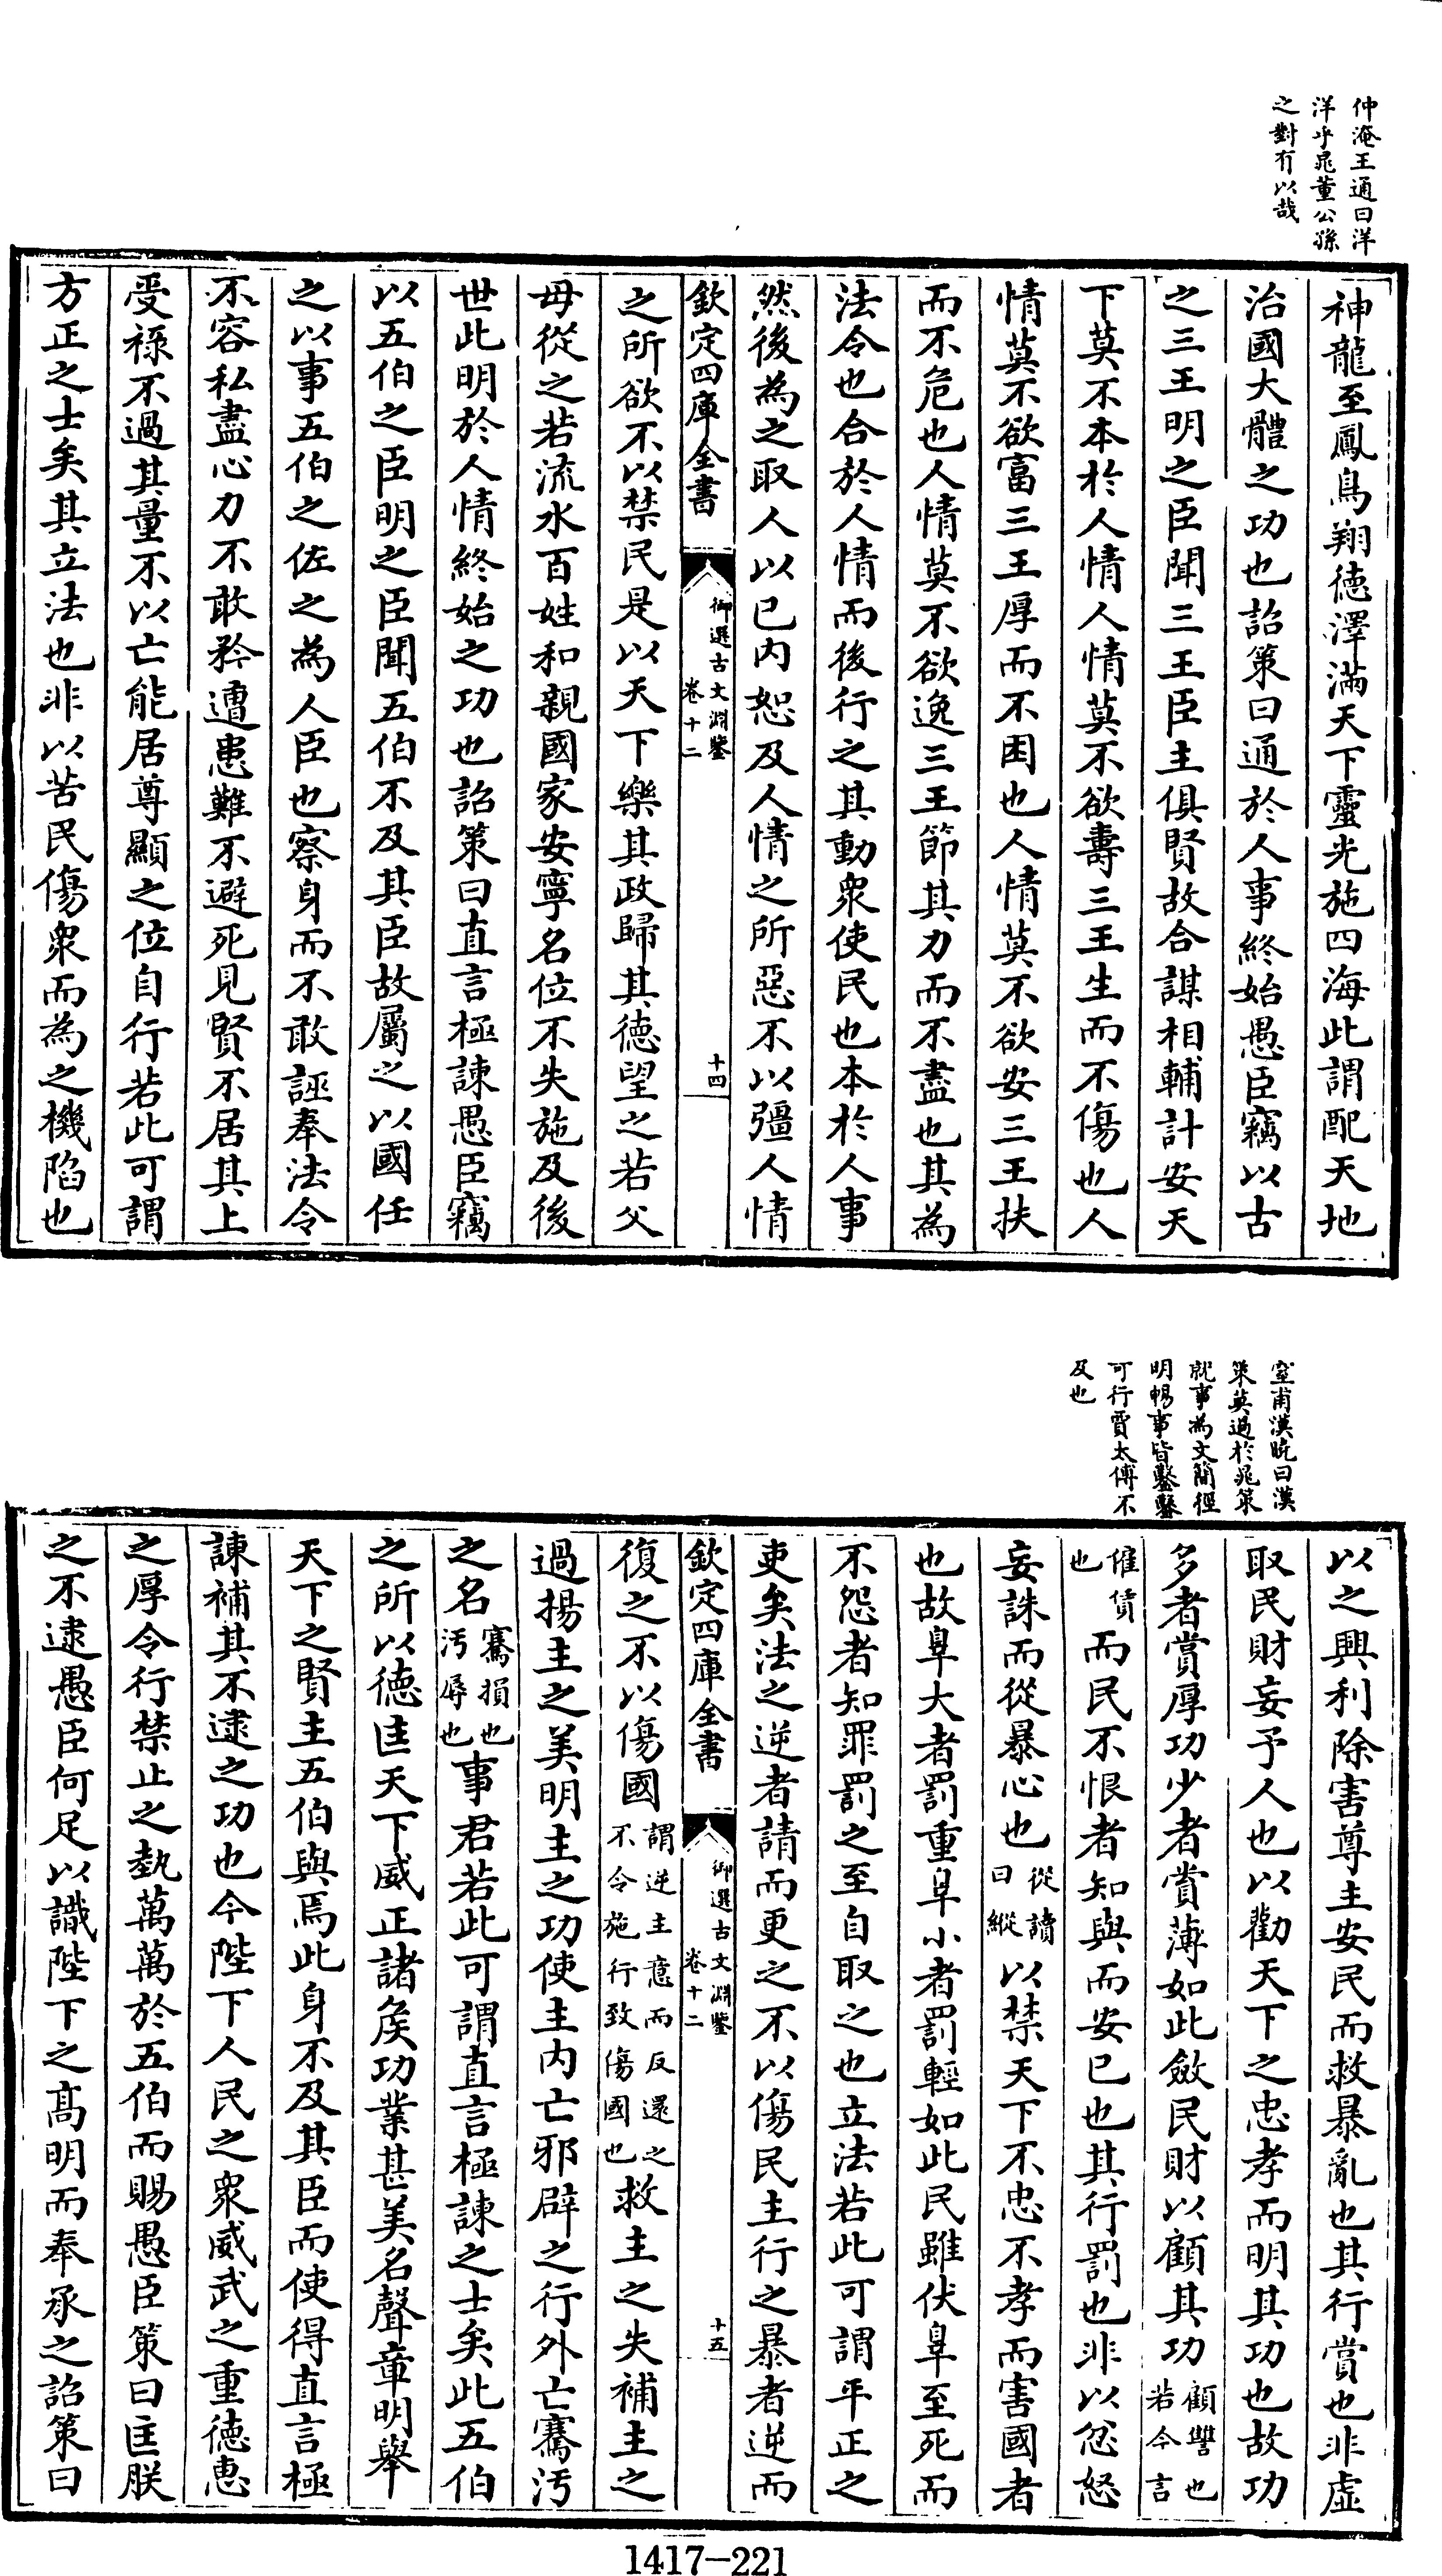 仲淹王通曰洋
洋乎晁董公孫
之對有以哉
神龍至鳳鳥翔徳澤滿天下靈光施四海此謂配天地
治國大體之功也詔策曰通於人事終始愚臣竊以古
之三王明之臣聞三王臣主俱賢故合謀相輔計安天
下莫不本於人情人情莫不欲壽三王生而不傷也人
情莫不欲富三王厚而不困也人情莫不欲安三王扶
而不危也人情莫不欲逸三王節其力而不盡也其為
法令也合於人情而後行之其動衆使民也本於人事
然後為之取人以已内恕及人情之所惡不以彊人情
欽定四庫全書
御選古文淵鑒
卷十二
十四
之所欲不以禁民是以天下樂其政歸其德望之若父
母從之若流水百姓和親國家安寧名位不失施及後
世此明於人情終始之功也詔策曰直言極諫愚臣竊
以五伯之臣明之臣聞五伯不及其臣故屬之以國任
之以事五伯之佐之為人臣也察身而不敢誣奉法令
不容私盡心力不敢矜遭患難不避死見賢不居其上
受祿不過其量不以亡能居尊顯之位自行若此可謂
方正之士矣其立法也非以苦民傷衆而為之機陷也
窒甫漢晥曰漢
策莫過於晁策
就事為文簡徑
明暢事皆鑿鑿
可行賈太傅不
及也
以之興利除害尊主安民而救暴亂也其行賞也非虛
取民財妄予人也以勸天下之忠孝而明其功也故功
多者賞厚功少者賞薄如此斂民財以顧其功顧讐也
若今言
僱賃
也而民不恨者知與而安已也其行罰也非以忿怒
妄誅而從暴心也從讀
曰縱以禁天下不忠不孝而害國者
也故辠大者罰重辠小者罰輕如此民雖伏辠至死而
不怨者知罪罰之至自取之也立法若此可謂平正之
吏矣法之逆者請而更之不以傷民主行之暴者逆而
欽定四庫全書
御選古文淵鑒
卷十二
十五
復之不以傷國謂逆主意而反還之
不令施行致傷國也救主之失補主之
過揚主之美明主之功使主内亡邪辟之行外亡騫汚
之名騫損也
汚辱也事君若此可謂直言極諫之士矣此五伯
之所以徳匡天下威正諸矦功業甚美名聲章明舉
天下之賢主五伯與焉此身不及其臣而使得直言極
諫補其不逮之功也今陛下人民之衆威武之重徳惠
之厚令行禁止之埶萬萬於五伯而賜愚臣策曰匡朕
之不逮愚臣何足以識陛下之髙明而奉承之詔策曰
1417-221